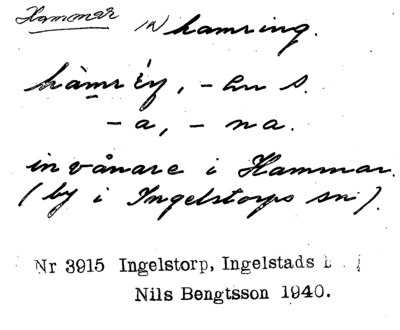 Hammar IN hamring.
hàmrėŋ, -en s.
-a, -na.
invånare i Hammar.
(by i Ingelstorps sn).
Nr 3915 Ingelstorp, Ingelstads
Nils Bengtsson 1940.